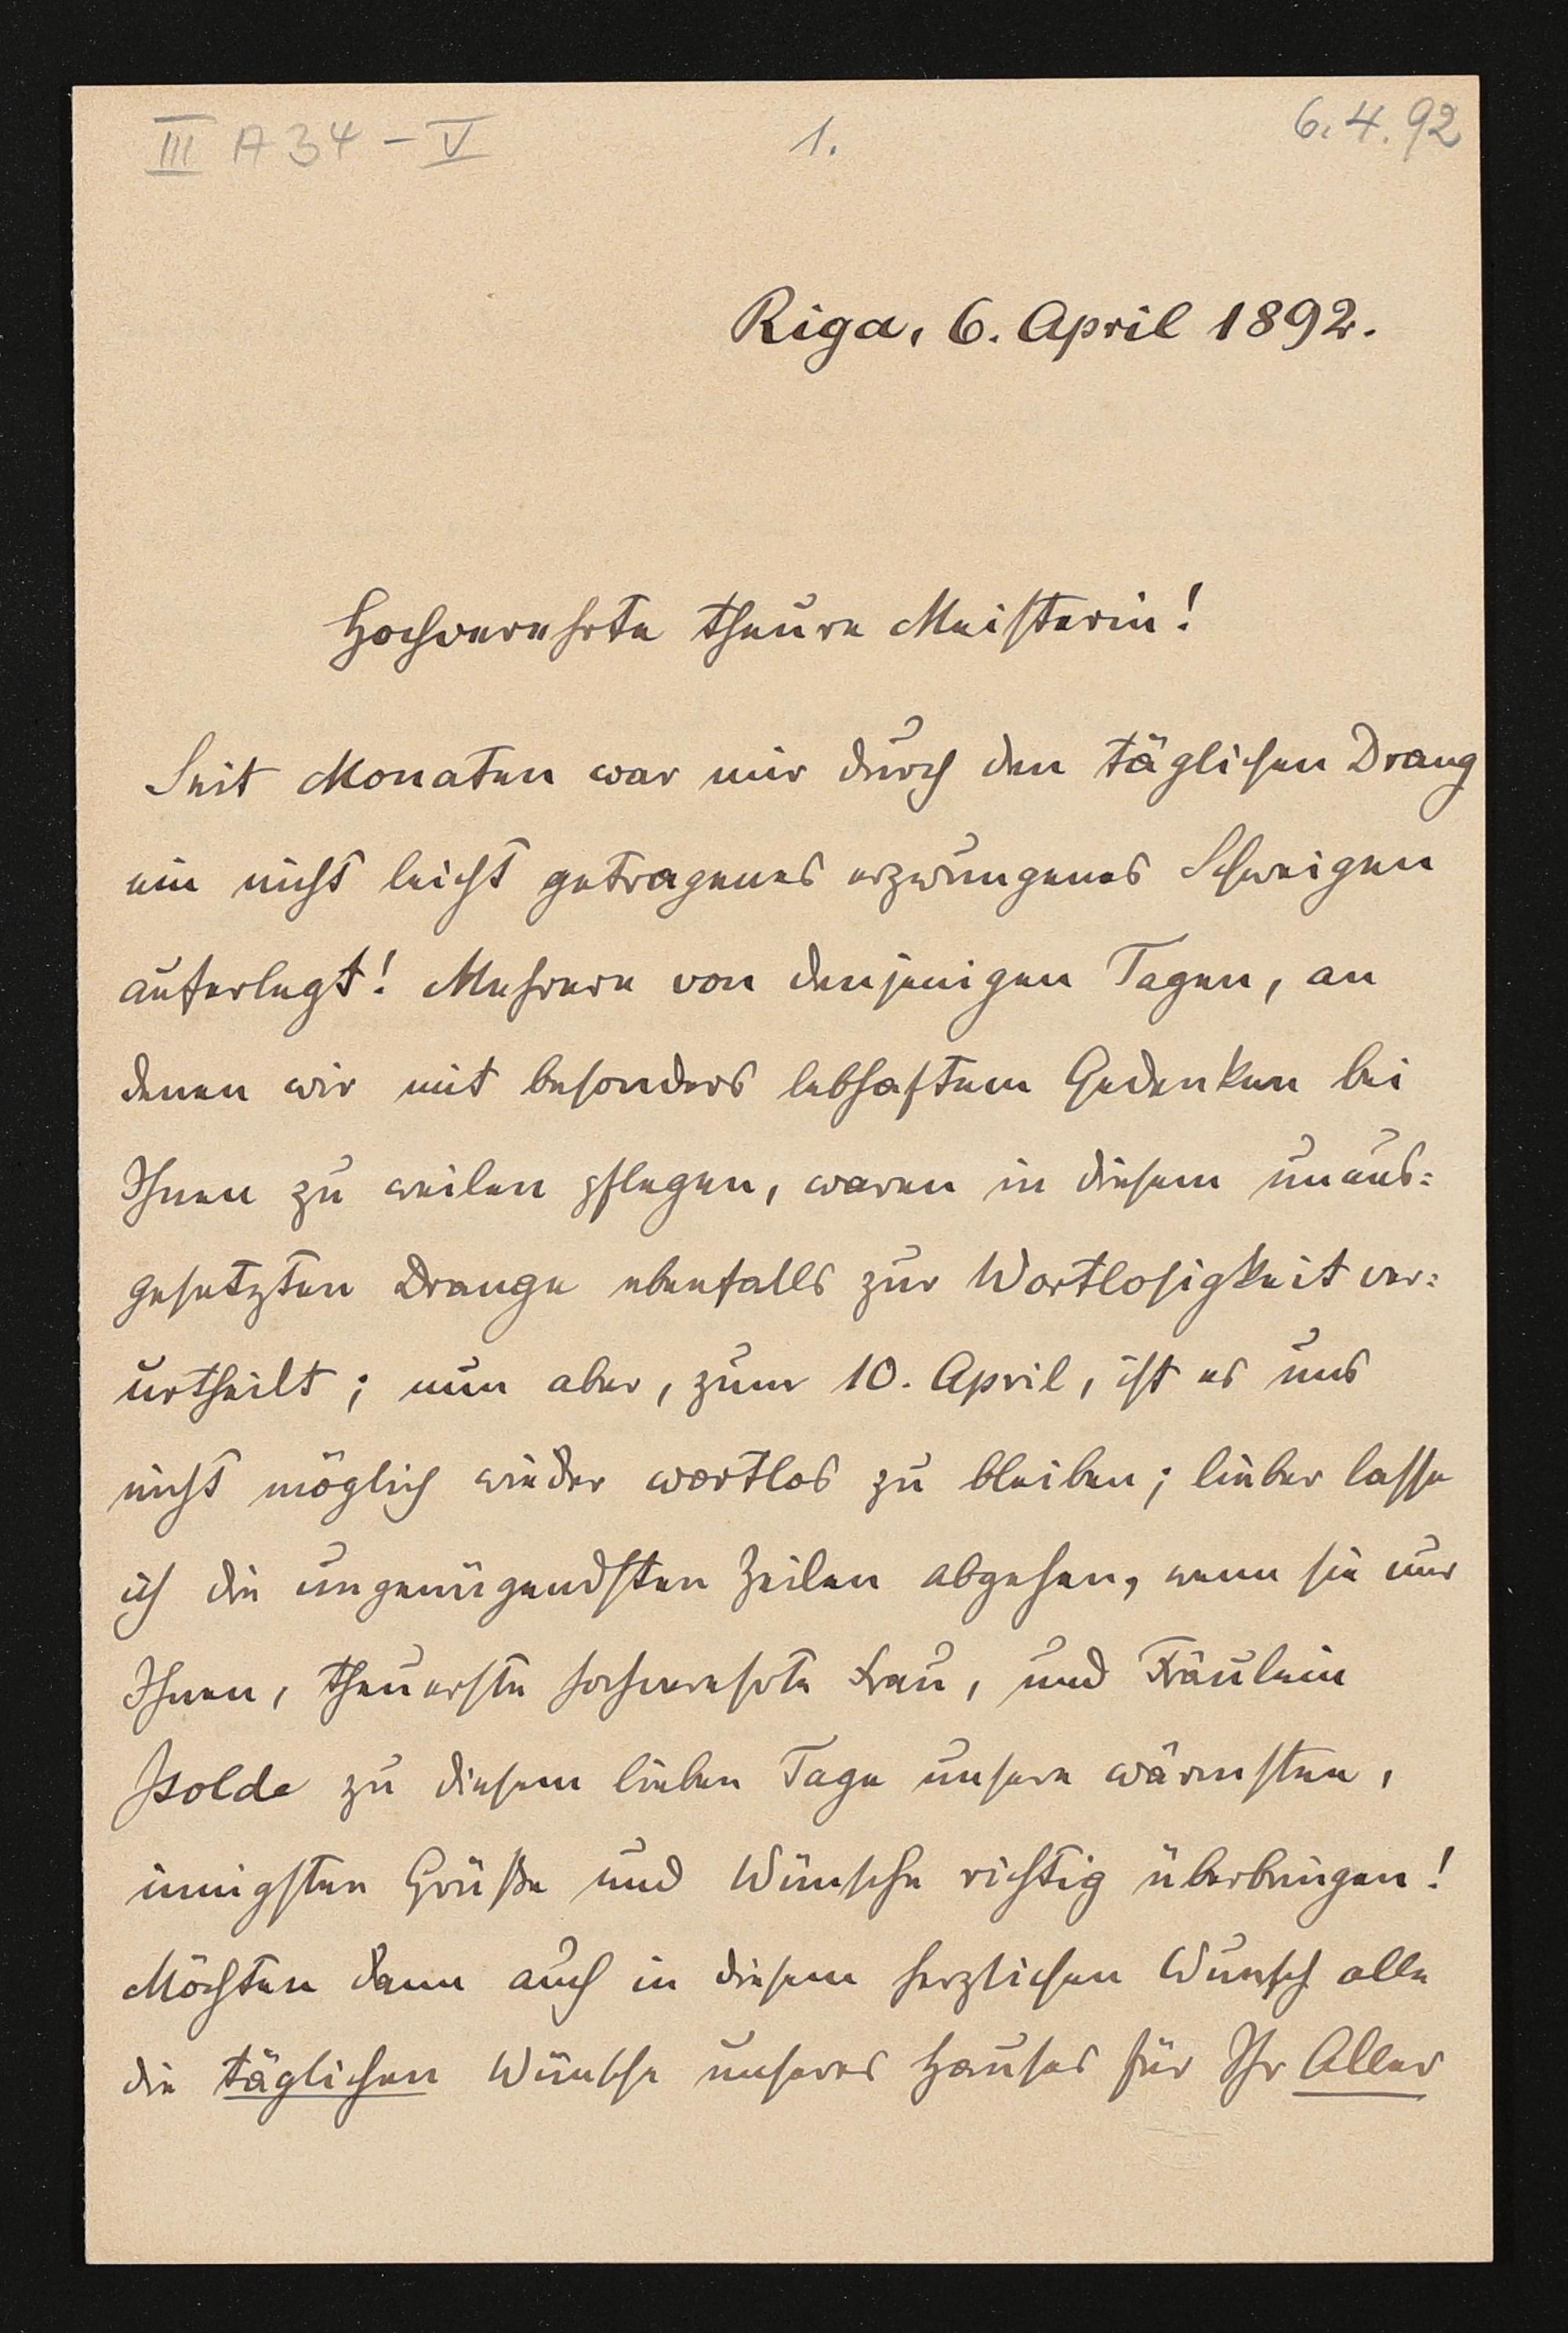 III A 34 – V
1.
6.4.92
Riga, 6. April 1892.
Hochverehrte theure Meisterin!
Seit Monaten war mir durch den täglichen Drang
ein nicht leicht getragenes erzwungenes Schweigen
auferlegt! Mehrere von denjenigen Tagen, an
denen wir mit besonders lebhaftem Gedenken bei
Ihnen zu weilen pflegen, waren in diesem unaus=
gesetzten Drange ebenfalls zur Wortlosigkeit ver=
urtheilt; nun aber, zum 10. April, ist es uns
nicht möglich wieder wortlos zu bleiben; lieber lasse
ich die ungenügendsten Zeilen abgehen, wenn sie nur
Ihnen, theuerste hochverehrte Frau, und Fräulein
Isolde zu diesem lieben Tage unsere wärmsten,
innigsten Grüße und Wünsche richtig überbringen!
Möchten denn auch in diesem herzlichen Wunsch alle
die täglichen Wünsche unseres Hauses für Ihr Aller